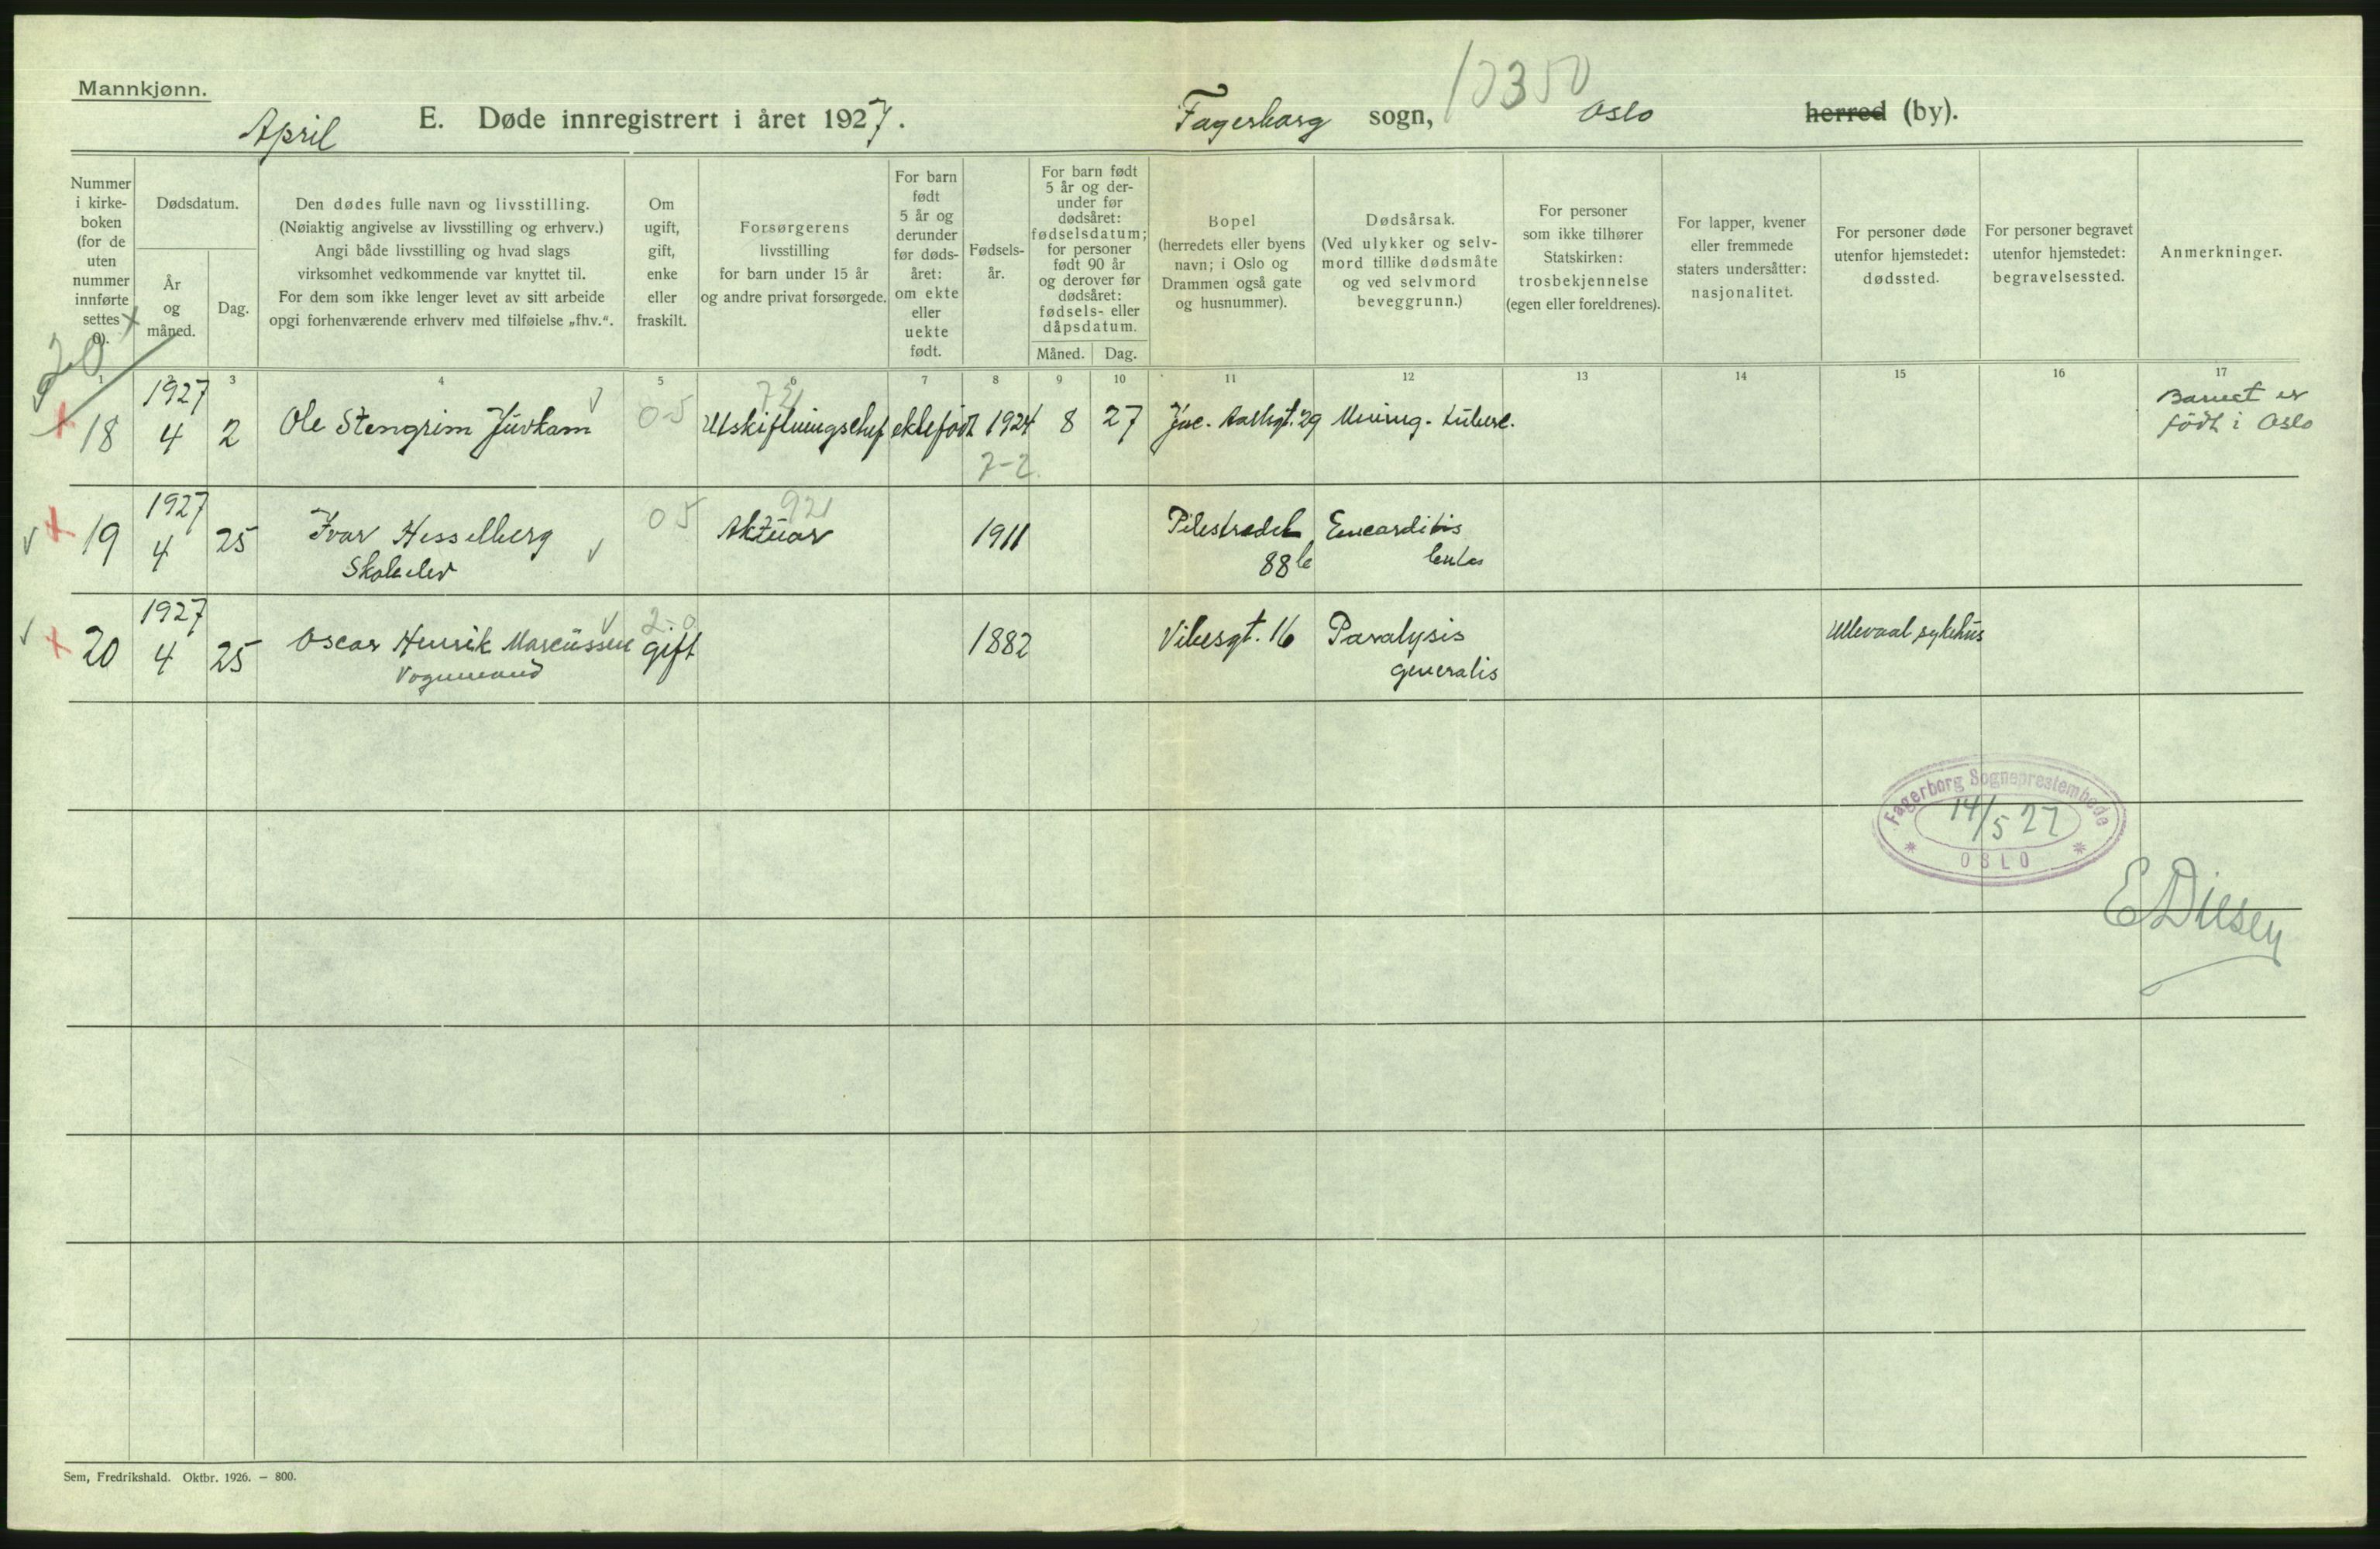 Mannkjønn.
April
E. Døde innregistrert i året 1927.
Fagerborg sogn, Oslo herred (by).
Nummer
i kirke-
boken
(for de
uten
nummer
innførte
settes
0).
Dødsdatum.
År
og
måned.
Dag.
Den dødes fulle navn og livsstilling.
(Nøiaktig angivelse av livsstilling og erhverv.)
Angi både livsstilling og hvad slags
virksomhet vedkommende var knyttet til.
For dem som ikke lenger levet av sitt arbeide
opgi forhenværende erhverv med tilføielse „fhv.“.
Om
ugift,
gift,
enke
eller
fraskilt.
Forsørgerens
livsstilling
for barn under 15 år
og andre privat forsørgede.
For barn
født
5 år og
derunder
før døds-
året:
om ekte
eller
uekte
født.
Fødsels-
år.
For barn født
5 år og der-
under før
dødsåret:
fødselsdatum;
for personer
født 90 år
og derover før
dødsåret:
fødsels- eller
dåpsdatum.
Måned. Dag.
Bopel
(herredets eller byens
navn; i Oslo og
Drammen også gate
og husnummer).
Dødsårsak.
(Ved ulykker og selv-
mord tillike dødsmåte
og ved selvmord
beveggrunn.)
For personer
som ikke tilhører
Statskirken:
trosbekjennelse
(egen eller foreldrenes).
For lapper, kvener
eller fremmede
staters undersåtter:
nasjonalitet.
For personer døde
utenfor hjemstedet:
dødssted.
For personer begravet
utenfor hjemstedet:
begravelsessted.
Anmerkninger.
20
1 2 3 4 5 6 7 8 9 10 11 12 13 14 15 16 17
1927
18 4 2 Ole Stengrim Juvkam 0-5 Utskiftningschef ektefødt 1924 8 27 Jac. Aallsgt. 29 Mening. tuberc.
Barnet er
født i Oslo
2-2
1927
19 4 25 Ivar Hesselberg 05 921 Aktuar 1911 Pilestredet Endocarditis
Skoleelev 88b lenta
1927 2-0
20 4 25 Oscar Henrik Marcussen gift 1882 Vibesgt. 16 Paralysis Ullevaal sykehus
Vognmand generalis
Fagerborg Sogneprestembede
14/5 27
OSLO
E Diesen
Sem, Fredrikshald. Oktbr. 1926. — 800.